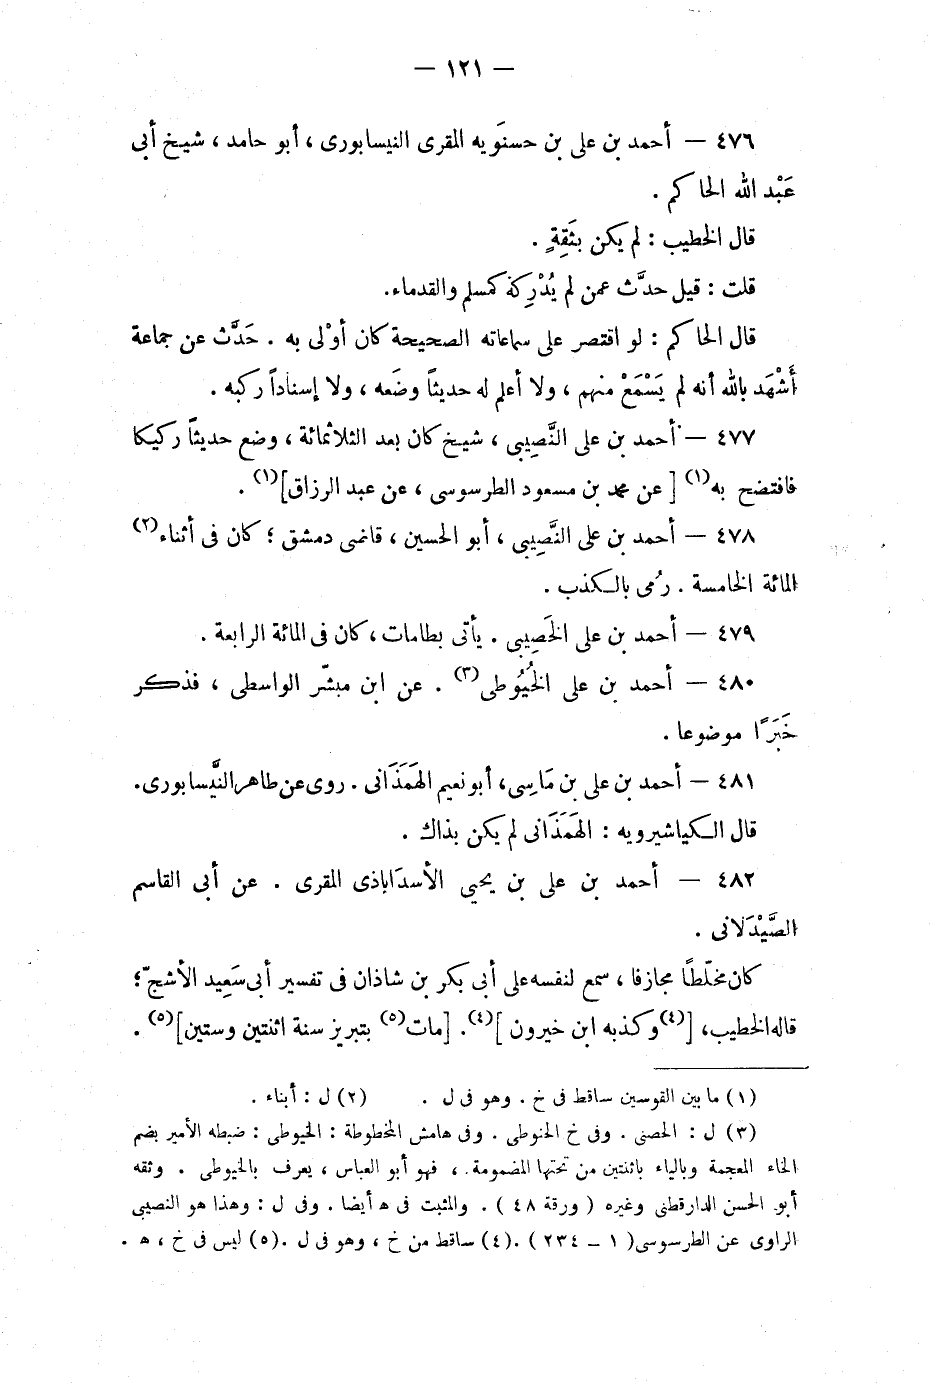 — ١٢١ —
٤٧٦ — أحمد بن على بن حسنَويه المقرى النيسابورى ، أبو حامد ، شيخ أبى
عَبْد الله الحاكم .
قال الخطيب : لم يكن بثَقِةٍ .
قلت : قيل حدَّث عمن لم يُدْرِكه كمسلم والقدماء.
قال الحاكم : لو اقتصر على سماعاته الصحيحة كان أوْلى به . حَدَّث عن جماعة
أَشْهَد بالله أنه لم يَسْمَعْ منهم ، ولا أعلم له حديثاً وضَعه ، ولا إسناداً ركبه .
٤٧٧ — أحمد بن على النَّصِيبى ، شيخ كان بعد الثلاثمائة ، وضع حديثاً ركيكا
فافتضح به(١) [ عن محمد بن مسعود الطرسوسى ، عن عبد الرزاق](١) .
٤٧٨ — أحمد بن على النَّصِيبى ، أبو الحسين ، قاضى دمشق ؛ كان فى أثناء(٢)
المائة الخامسة . رُمى بالكذب .
٤٧٩ — أحمد بن على الخَصِيبى . يأتى بطامات ، كان فى المائة الرابعة .
٤٨٠ — أحمد بن على الخُيُوطى(٣) . عن ابن مبشّر الواسطى ، فذكر
خَبَرًا موضوعا .
٤٨١ — أحمد بن على بن مَاسِى، أبو نعيم الهَمَذَانى . روى عن طاهر النَّيسابورى.
قال الكياشيرويه : الهَمَذَانى لم يكن بذاك .
٤٨٢ — أحمد بن على بن يحيى الأسدَاباذى المقرى . عن أبى القاسم
الصَّيْدَلانى .
كان مخلّطًا مجازفا ، سمع لنفسه على أبى بكر بن شاذان فى تفسير أبى سَعِيد الأشجّ؛
قاله الخطيب، [(٤)وكذبه ابن خيرون ](٤). [مات(٥) بتبريز سنة اثنتين وستين](٥) .
(١) ما بين القوسين ساقط فى خ . وهو فى ل . (٢) ل : أبناء .
(٣) ل : الحصنى . وفى خ الخنوطى . وفى هامش المخطوطة : الخيوطى : ضبطه الأمير بضم
الخاء المعجمة وبالياء باثنتين من تحتها المضمومة ، فهو أبو العباس ، يعرف بالخيوطى . وثقه
أبو الحسن الدارقطنى وغيره ( ورقة ٤٨ ) . والمثبت فى ه أيضا . وفى ل : وهذا هو النصيبى
الراوى عن الطرسوسى( ١ – ٢٣٤ ) .(٤) ساقط من خ ، وهو فى ل .(٥) ليس فى خ ، ه .